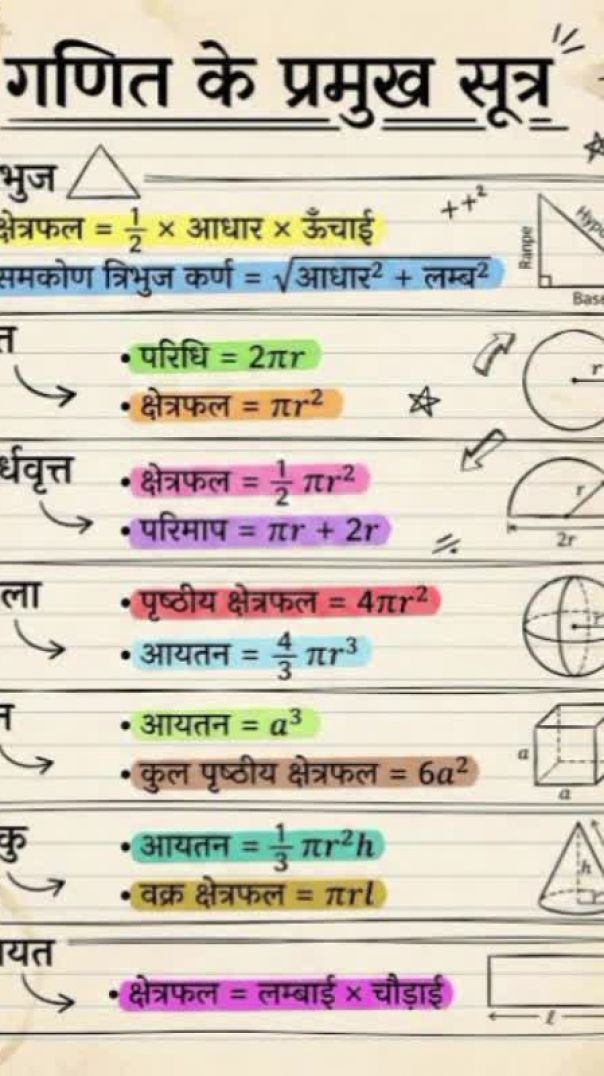 गणित के प्रमुख सूत्र
भुज
क्षेत्रफल = 1/2 × आधार × ऊँचाई
++²
समकोण त्रिभुज कर्ण = √आधार² + लम्ब²
Ranpe
Hypo
Base
त
• परिधि = 2πr
• क्षेत्रफल = πr²
r
र्धवृत्त
• क्षेत्रफल = 1/2 πr²
• परिमाप = πr + 2r
r
2r
ला
• पृष्ठीय क्षेत्रफल = 4πr²
• आयतन = 4/3 πr³
r
न
• आयतन = a³
• कुल पृष्ठीय क्षेत्रफल = 6a²
a
a
कु
• आयतन = 1/3 πr²h
• वक्र क्षेत्रफल = πrl
h
यत
• क्षेत्रफल = लम्बाई × चौड़ाई
ℓ